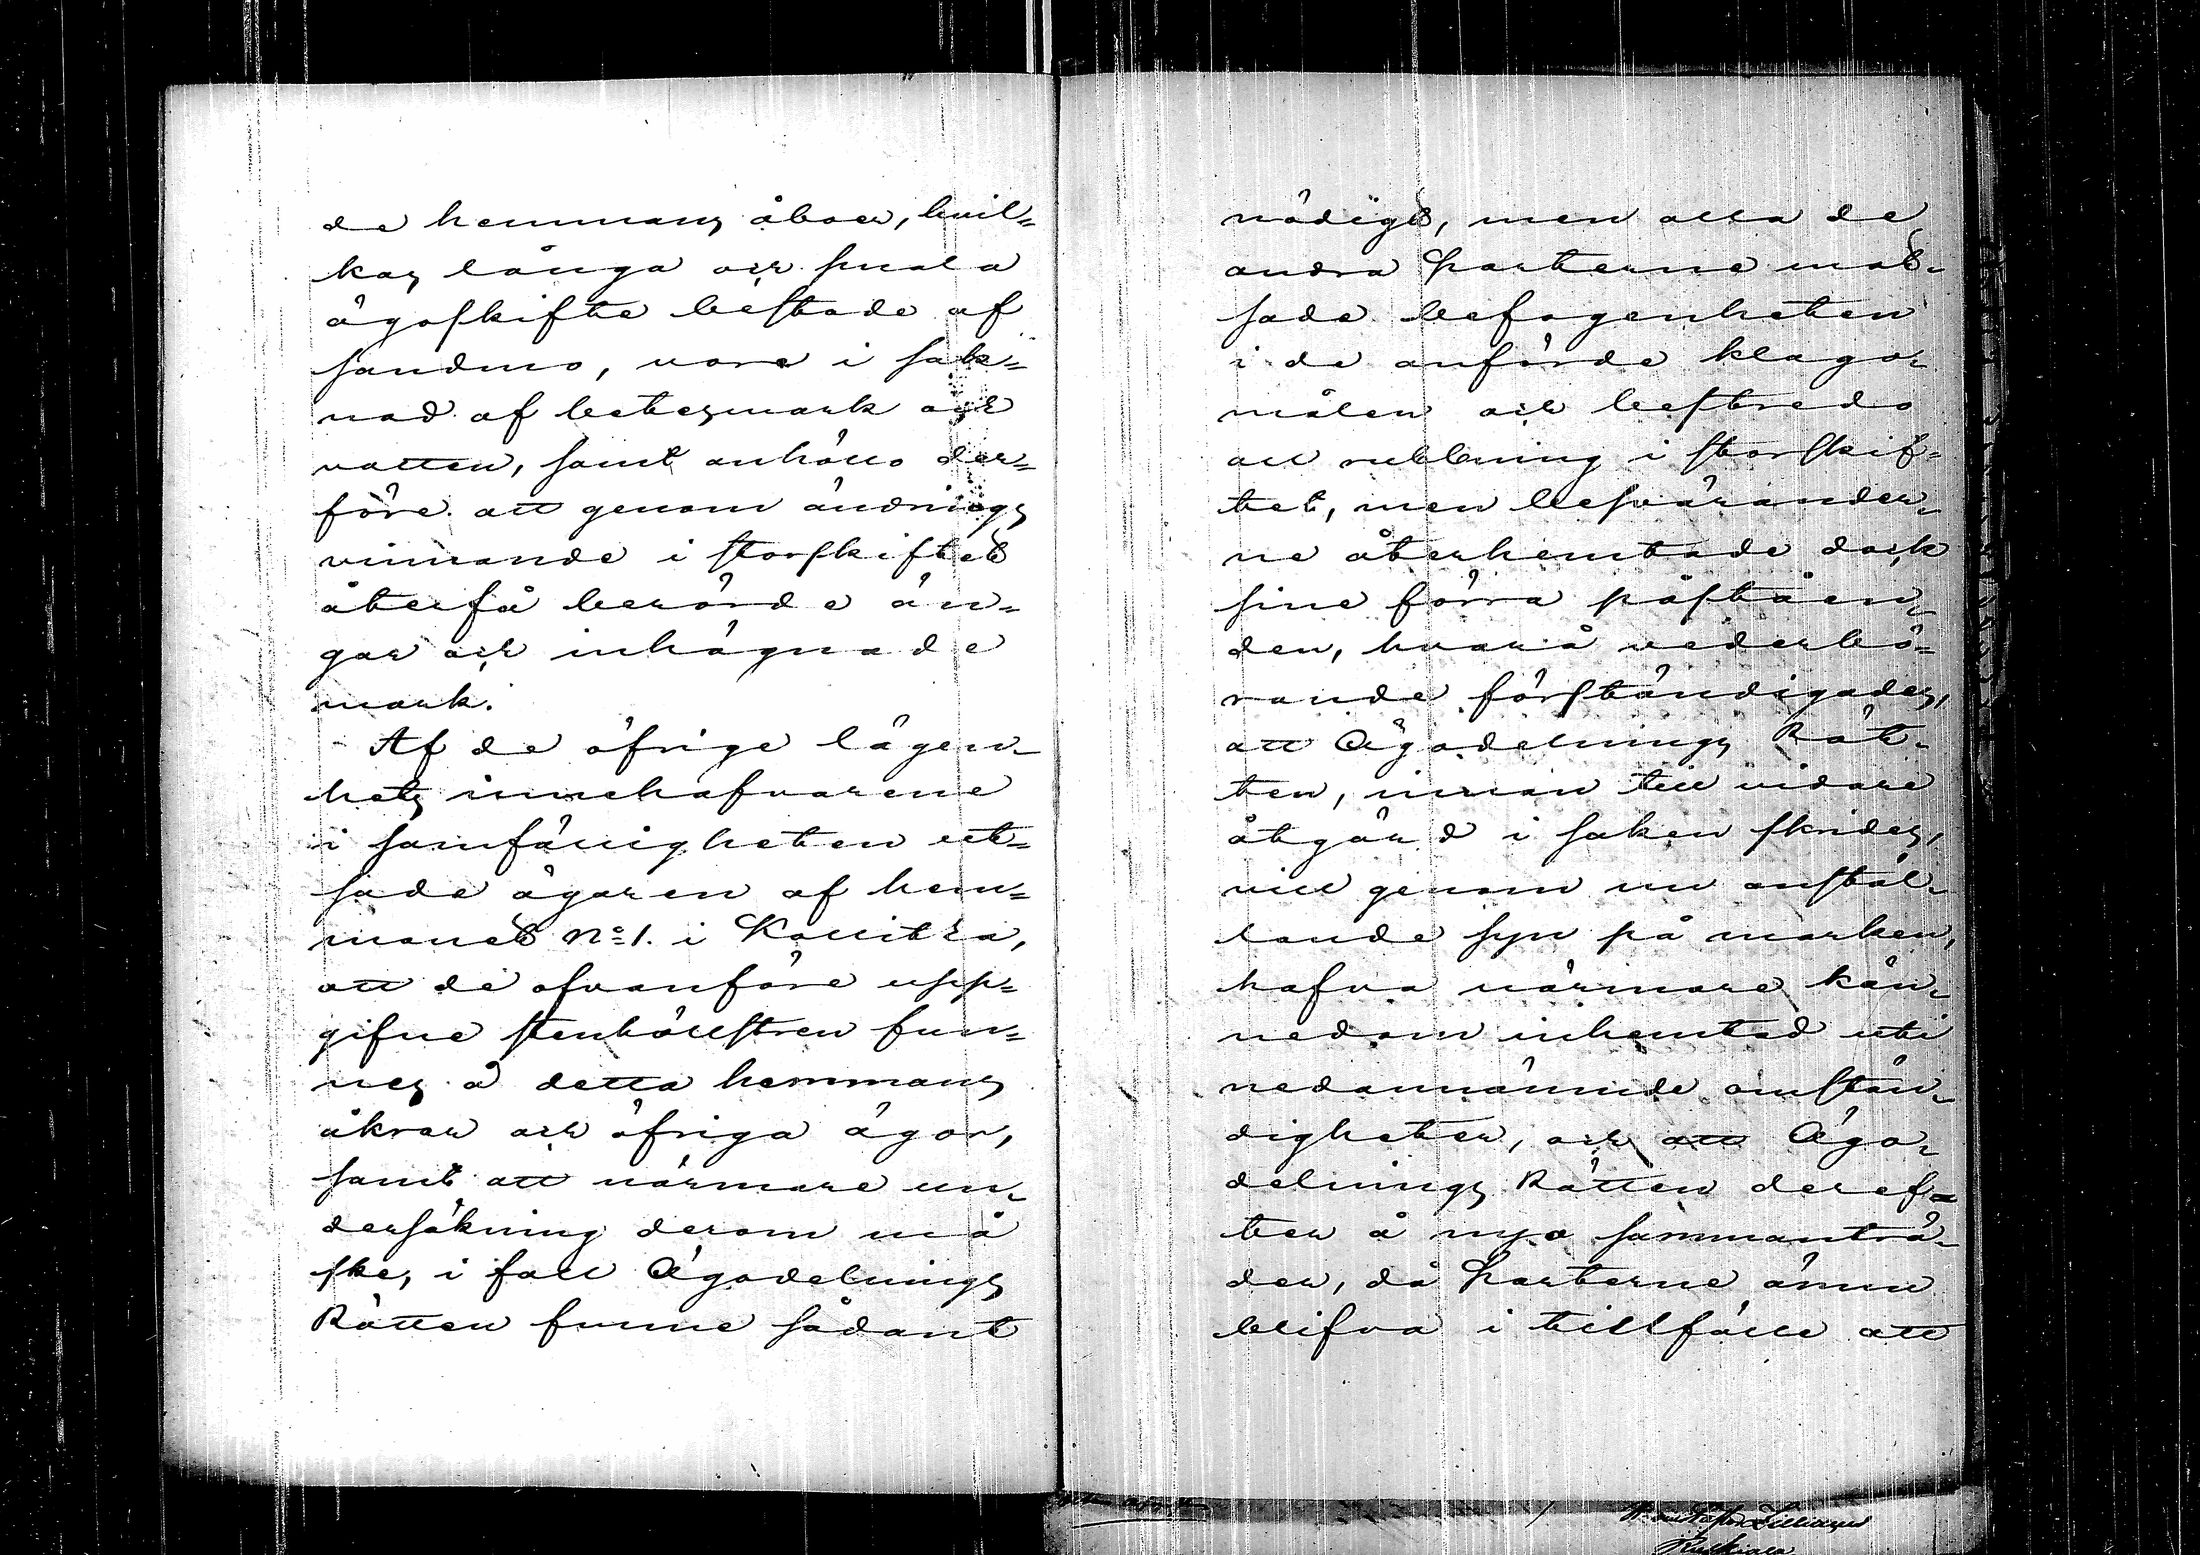 de hemmans åboer, hvil=
kas långa och smala
ägoskifte bestode af
sandmo, vore i sak=
nad af betesmark och
vatten, samt anhöllo der=
före att genom ändrings
vinnande i storskiftet
återfå berörde än=
gar och inhägnade
mark.
Af de öfrige lägen=
hets innehafvarene
i samfälligheten ut=
sade ägaren af hem=
manet No 1. i Kallitza,
att de ofvanföre upp=
gifne stenhällstren fun=
nes å detta hemmans
åkrar och öfriga ägor,
samt att närmare un=
dersökning derom må
ske, i fall Ägodelnings
Rätten funne sådant
nödigt, men alla de
andra Parterne mot=
sade befogenheten
i de anförde klago=
målen och bestredo
all rubbning i storskif=
tet, men besvärander=
ne återhemtade dock
sine förra påståen=
den, hvarå vederbö=
rande förständigades,
att Ägodelnings Rät=
ten, innan till vidare
åtgärd i saken skrides,
vill genom nu anstäl=
lande syn på marken,
hafva närmare kän=
nedom inhemtad uti
nedannämnde omstän=
digheter, och att Ägo=
delnings Rätten deref=
ter å nyo sammanträ=
der, då Parterne ännu
blifva i tillfälle att